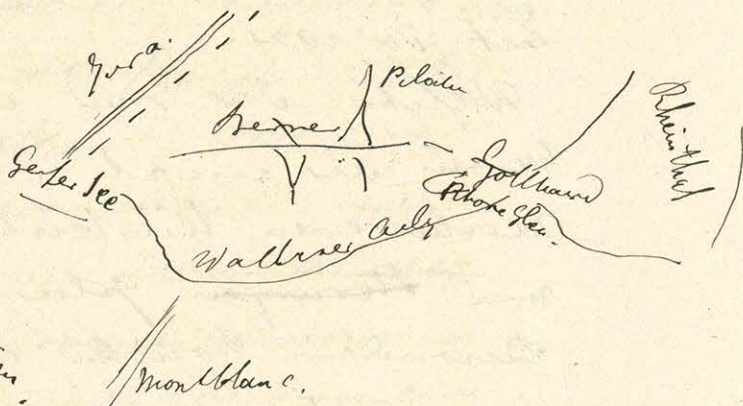 Jura.
Pilatus
Berner
Rheinthal
Genfer See
Gotthard
Rhone Glen.
Walliser Alp
Montblanc.